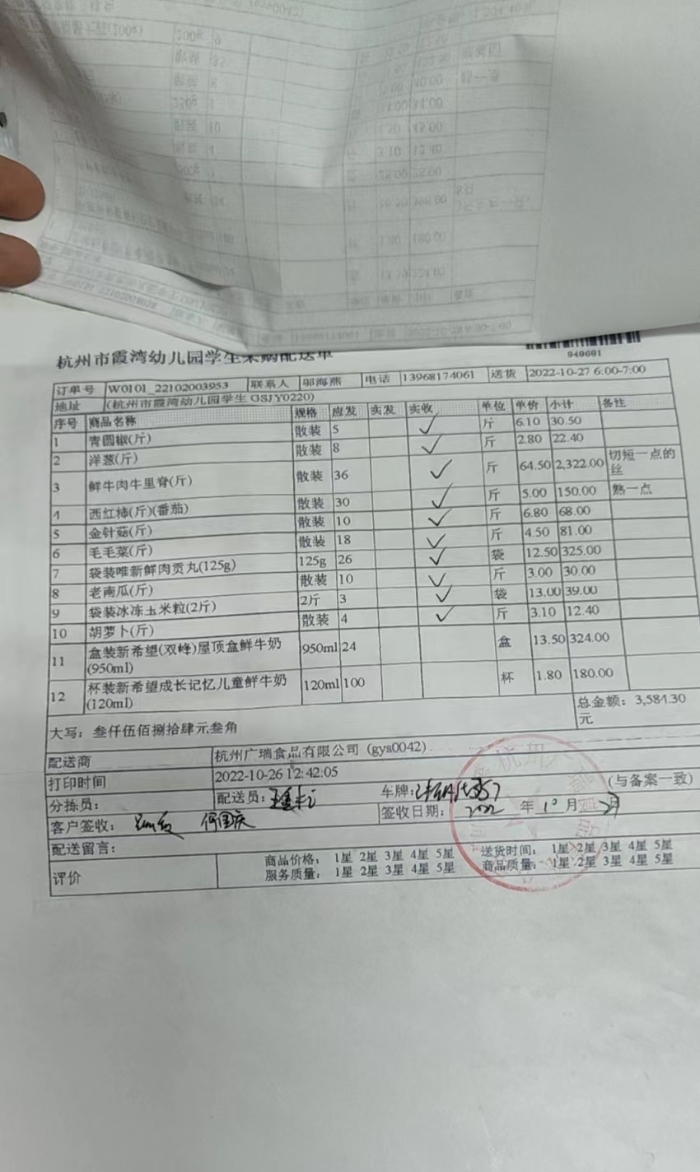 杭州市霞湾幼儿园学生采购配送单
949691
订单号 W0101_22102003953 联系人 邬海燕 电话 13968174061 送货 2022-10-27 6:00-7:00
地址 (杭州市霞湾幼儿园学生 GSJY0220)
序号 商品名称 规格 应发 实发 实收 单位 单价 小计 备注
1 青圆椒(斤) 散装 5 ✓ 斤 6.10 30.50
2 洋葱(斤) 散装 8 ✓ 斤 2.80 22.40
3 鲜牛肉牛里脊(斤) 散装 36 ✓ 斤 64.50 2,322.00 切短一点的丝
4 西红柿(斤)(番茄) 散装 30 ✓ 斤 5.00 150.00 熟一点
5 金针菇(斤) 散装 10 ✓ 斤 6.80 68.00
6 毛毛菜(斤) 散装 18 ✓ 斤 4.50 81.00
7 袋装唯新鲜肉贡丸(125g) 125g 26 ✓ 袋 12.50 325.00
8 老南瓜(斤) 散装 10 ✓ 斤 3.00 30.00
9 袋装冰冻玉米粒(2斤) 2斤 3 ✓ 袋 13.00 39.00
10 胡萝卜(斤) 散装 4 ✓ 斤 3.10 12.40
11 盒装新希望(双峰)屋顶盒鲜牛奶(950ml) 950ml 24 盒 13.50 324.00
12 杯装新希望成长记忆儿童鲜牛奶(120ml) 120ml 100 杯 1.80 180.00
大写: 叁仟伍佰捌拾肆元叁角 总金额: 3,584.30元
配送商 杭州广瑞食品有限公司 (gys0042)
打印时间 2022-10-26 12:42:05
分拣员: 配送员: 车牌: (与备案一致)
客户签收: 何国庆 签收日期: 2022 年 10 月
配送留言:
评价 商品价格: 1星 2星 3星 4星 5星 送货时间: 1星 2星 3星 4星 5星
服务质量: 1星 2星 3星 4星 5星 商品质量: 1星 2星 3星 4星 5星